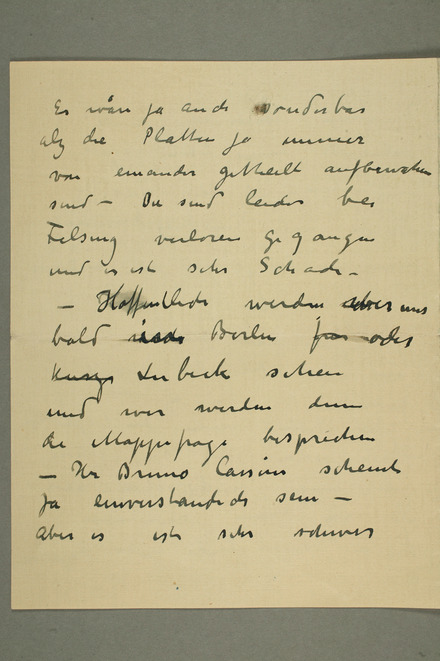 Es wäre ja auch sonderbar
da die Platten ja immer
von einander getheilt aufbewahrt
sind – Die sind leider bei
Felsing verloren gegangen
und es ist sehr Schade –
– Hoffentlich werden wir uns
bald in Berlin oder
Lübeck sehen
und wir werden dann
die Mappefrage besprechen
– Hr Bruno Cassirer scheint
ja einverstanden sein –
aber es ist sehr schwer